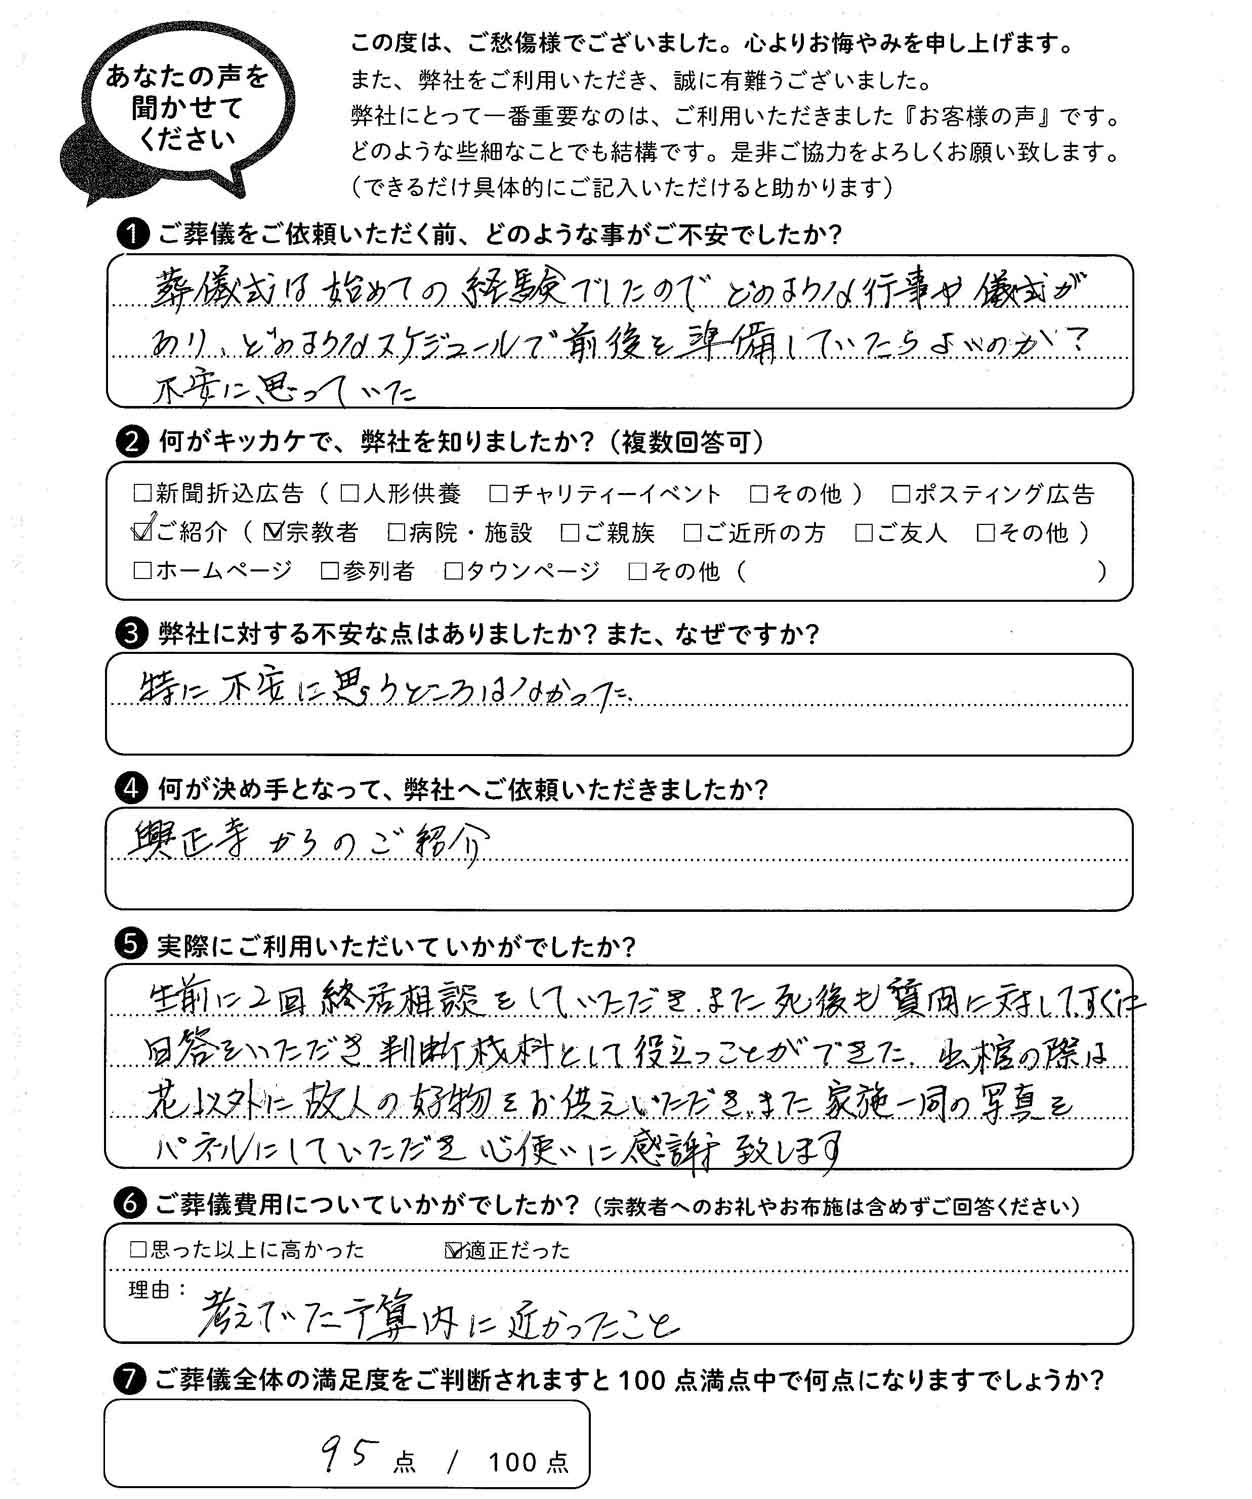 あなたの声を
聞かせて
ください
この度は、ご愁傷様でございました。心よりお悔やみを申し上げます。
また、弊社をご利用いただき、誠に有難うございました。
弊社にとって一番重要なのは、ご利用いただきました『お客様の声』です。
どのような些細なことでも結構です。是非ご協力をよろしくお願い致します。
（できるだけ具体的にご記入いただけると助かります）
❶ ご葬儀をご依頼いただく前、どのような事がご不安でしたか？
葬儀式は始めての経験でしたのでどのような行事や儀式が
あり、どのようなスケジュールで前後を準備していたらよいのか？
不安に思っていた
❷ 何がキッカケで、弊社を知りましたか？（複数回答可）
□新聞折込広告（ □人形供養 □チャリティーイベント □その他 ） □ポスティング広告
☑ご紹介（ ☑宗教者 □病院・施設 □ご親族 □ご近所の方 □ご友人 □その他 ）
□ホームページ □参列者 □タウンページ □その他（ ）
❸ 弊社に対する不安な点はありましたか？また、なぜですか？
特に不安に思うところはなかった.
❹ 何が決め手となって、弊社へご依頼いただきましたか？
興正寺からのご紹介
❺ 実際にご利用いただいていかがでしたか？
生前に2回終活相談をしていただき、また死後も質問に対して、すぐに
回答をいただき判断材料として役立つことができた. 出棺の際は
花以外に故人の好物をお供えいただき、また家族一同の写真を
パネルにしていただき心使いに感謝致します
❻ ご葬儀費用についていかがでしたか？（宗教者へのお礼やお布施は含めずご回答ください）
□思った以上に高かった ☑適正だった
理由：
考えていた予算内に近かったこと
❼ ご葬儀全体の満足度をご判断されますと 100 点満点中で何点になりますでしょうか？
95 点 / 100 点